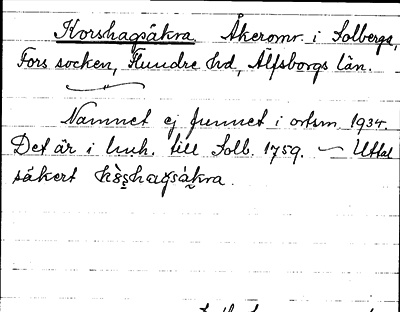 Korshagsåkra Åkeromr. i Solberga,
Fors socken, Flundre hd, Älfsborgs län.
Namnet ej funnet i ortsm. 1934.
Det är i luh. till Solb. 1759. — Uttal
säkert